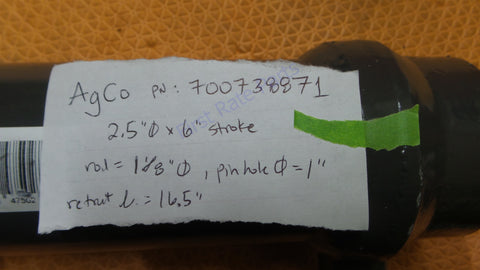 AgCo PN: 700738871
2.5"Ø x 6" stroke
rod = 1 1/8"Ø, pinhole Ø = 1"
retract l. = 16.5"
47502
First Rate